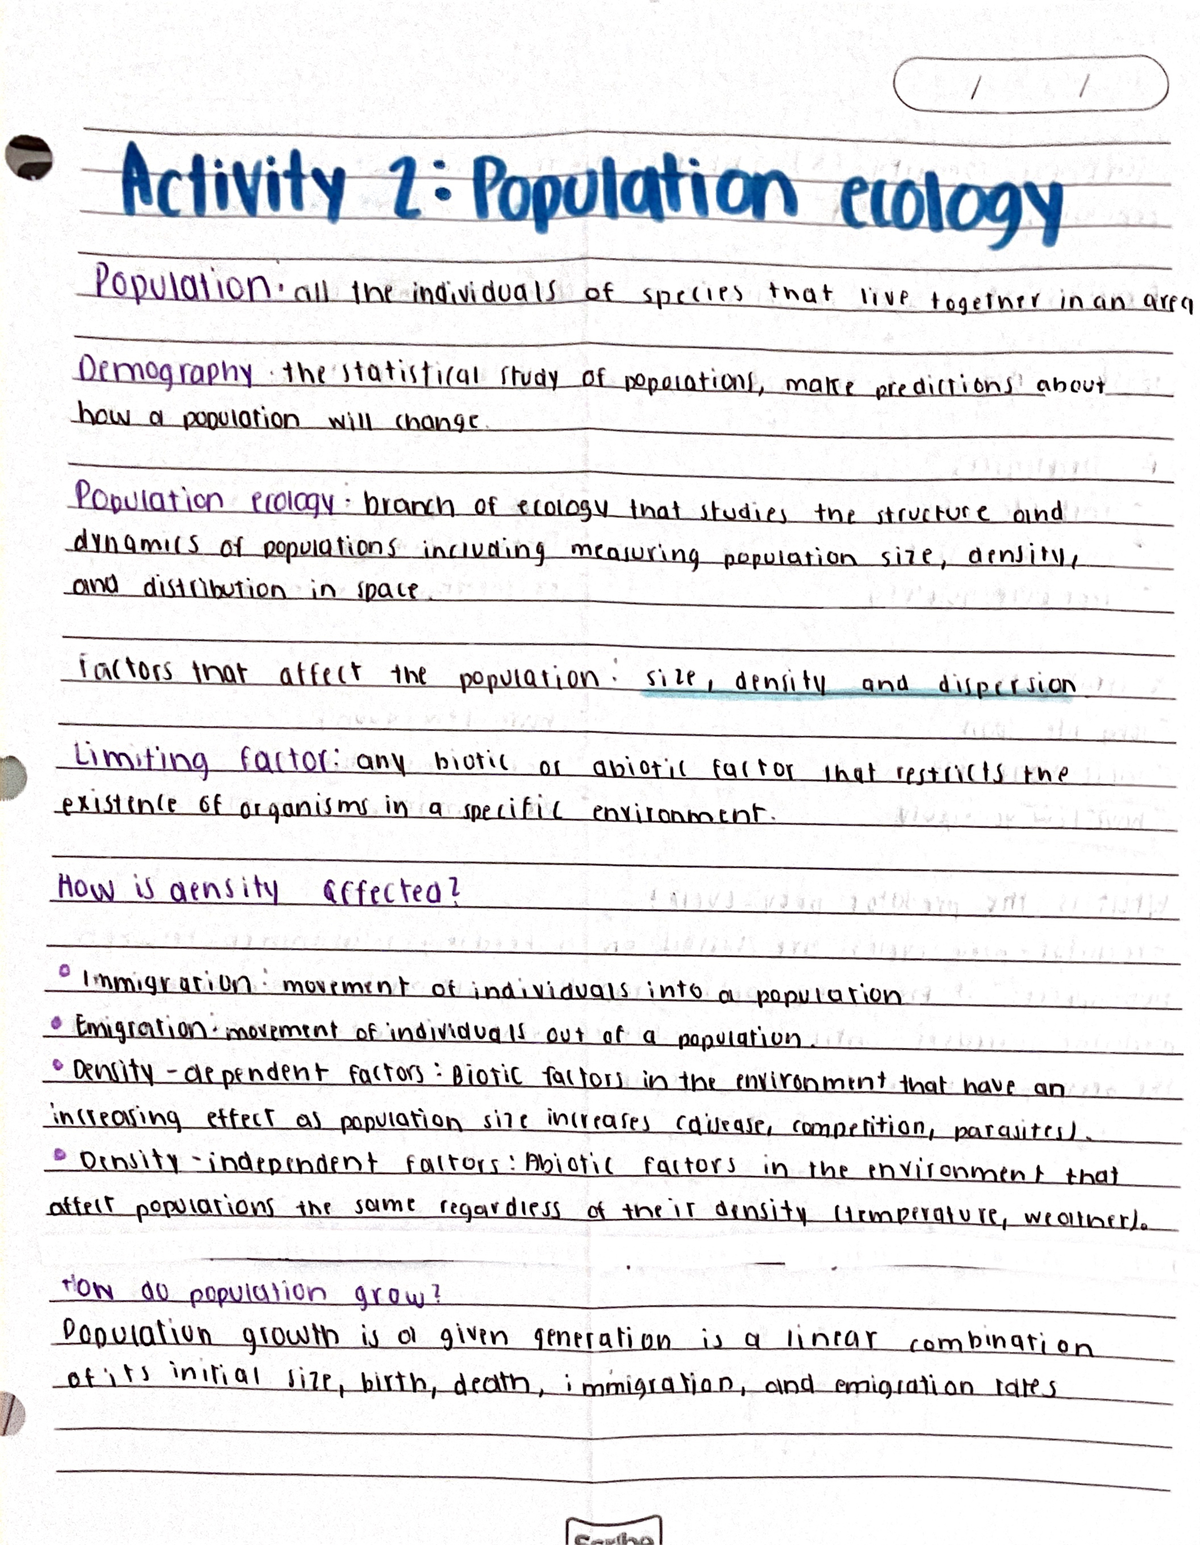 / /
Activity 2: Population ecology
Population: all the individuals of species that live together in an area
Demography: the statistical study of populations, make predictions about
how a population will change.
Population ecology: branch of ecology that studies the structure and
dynamics of populations including measuring population size, density,
and distribution in space.
Factors that affect the population: size, density and dispersion
Limiting factor: any biotic or abiotic factor that restricts the
existence of organisms in a specific environment.
How is density affected?
• Immigration: movement of individuals into a population
• Emigration: movement of individuals out of a population.
• Density-dependent factors: Biotic factors in the environment that have an
increasing effect as population size increases (disease, competition, parasites).
• Density-independent factors: Abiotic factors in the environment that
affect populations the same regardless of their density (temperature, weather).
How do population grow?
Population growth is a given generation is a linear combination
of its initial size, birth, death, immigration, and emigration rates
Scribe